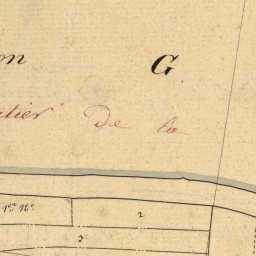 on G
tier De la
1re Nte 2
3